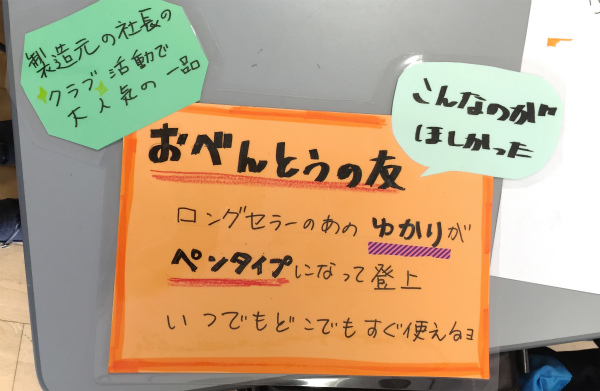 製造元の社長の
クラブ活動で
大人気の一品
こんなのが
ほしかった
おべんとうの友
ロングセラーのあの ゆかりが
ペンタイプになって登上
いつでもどこでもすぐ使えるヨ